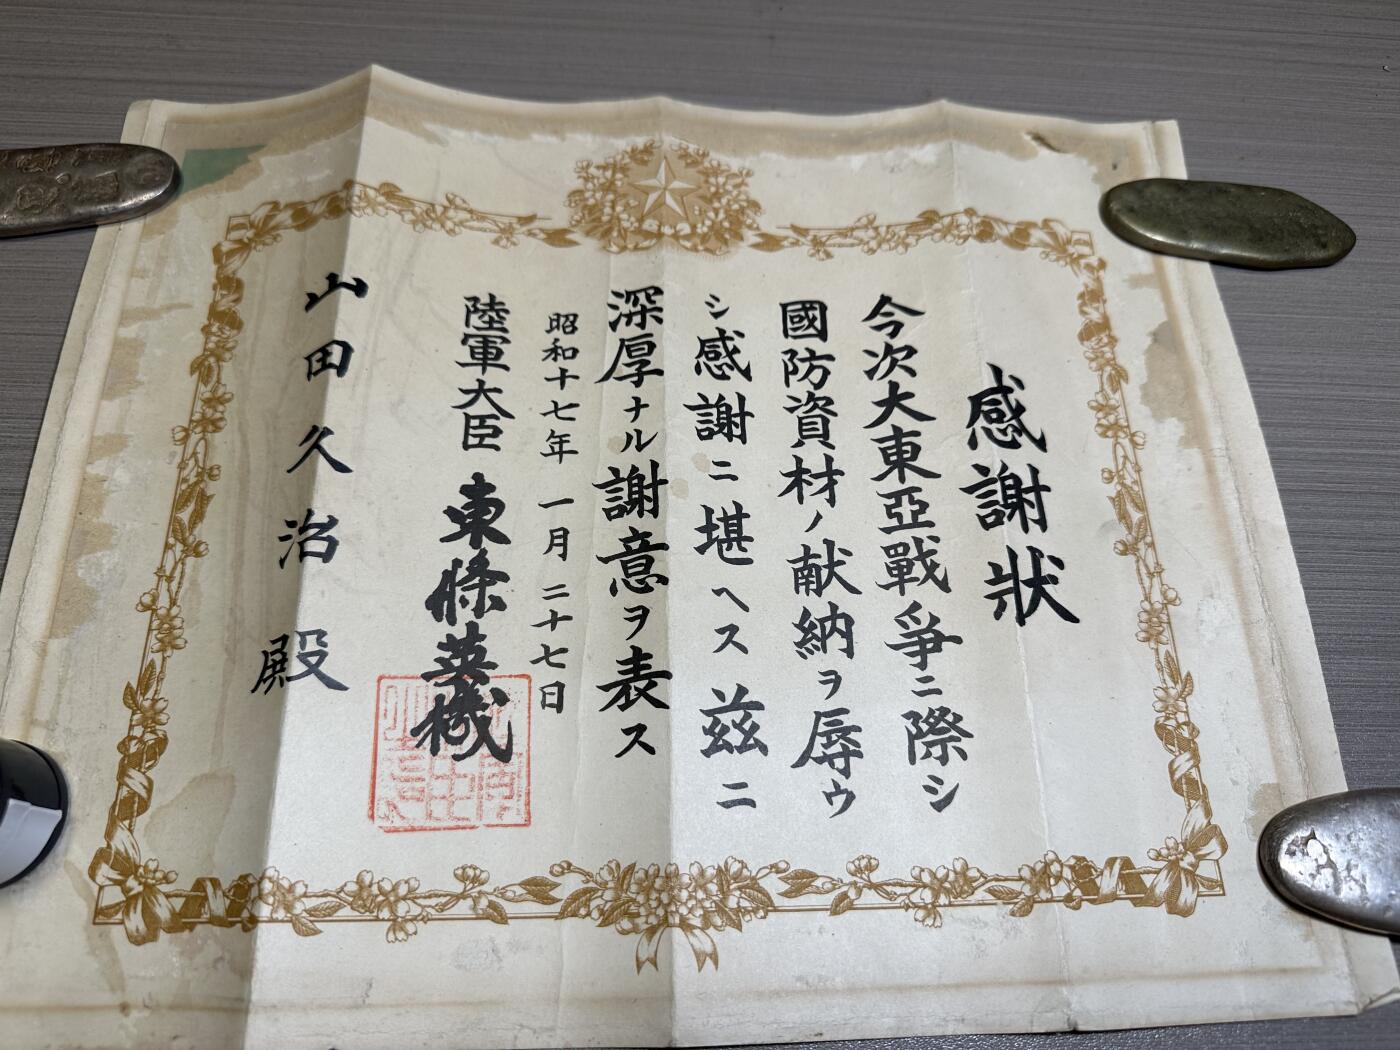 感謝狀
今次大東亞戰爭ニ際シ
國防資材ノ献納ヲ辱ウ
シ感謝ニ堪ヘス茲ニ
深厚ナル謝意ヲ表ス
昭和十七年一月二十七日
陸軍大臣東條英機
山田久治殿